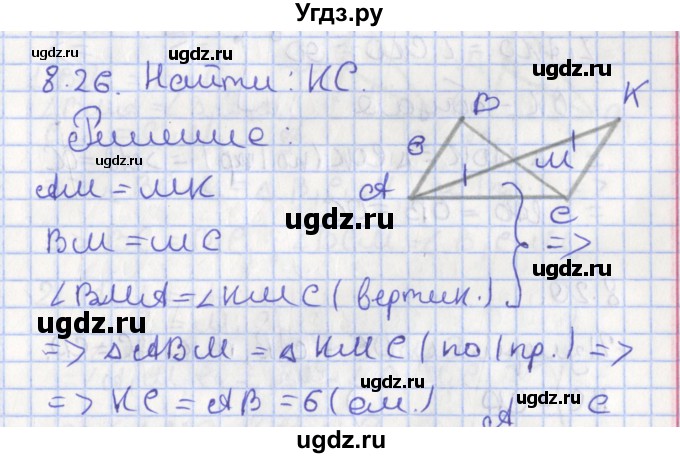 Угдз.ру
8.26. Найти: КС.
Решение:
B
K
6
M
A
C
AM = MK
BM = MC
=>
∠BMA = ∠KMC (вертик.)
=> △ABM = △KMC (по I пр.) =>
=> KC = AB = 6 (см.)
A
C
ugdz.ru
ugdz.ru
ugdz.ru
ugdz.ru
ugdz.ru
ugdz.ru
ugdz.ru
ugdz.ru
ugdz.ru
ugdz.ru
ugdz.ru
ugdz.ru
ugdz.ru